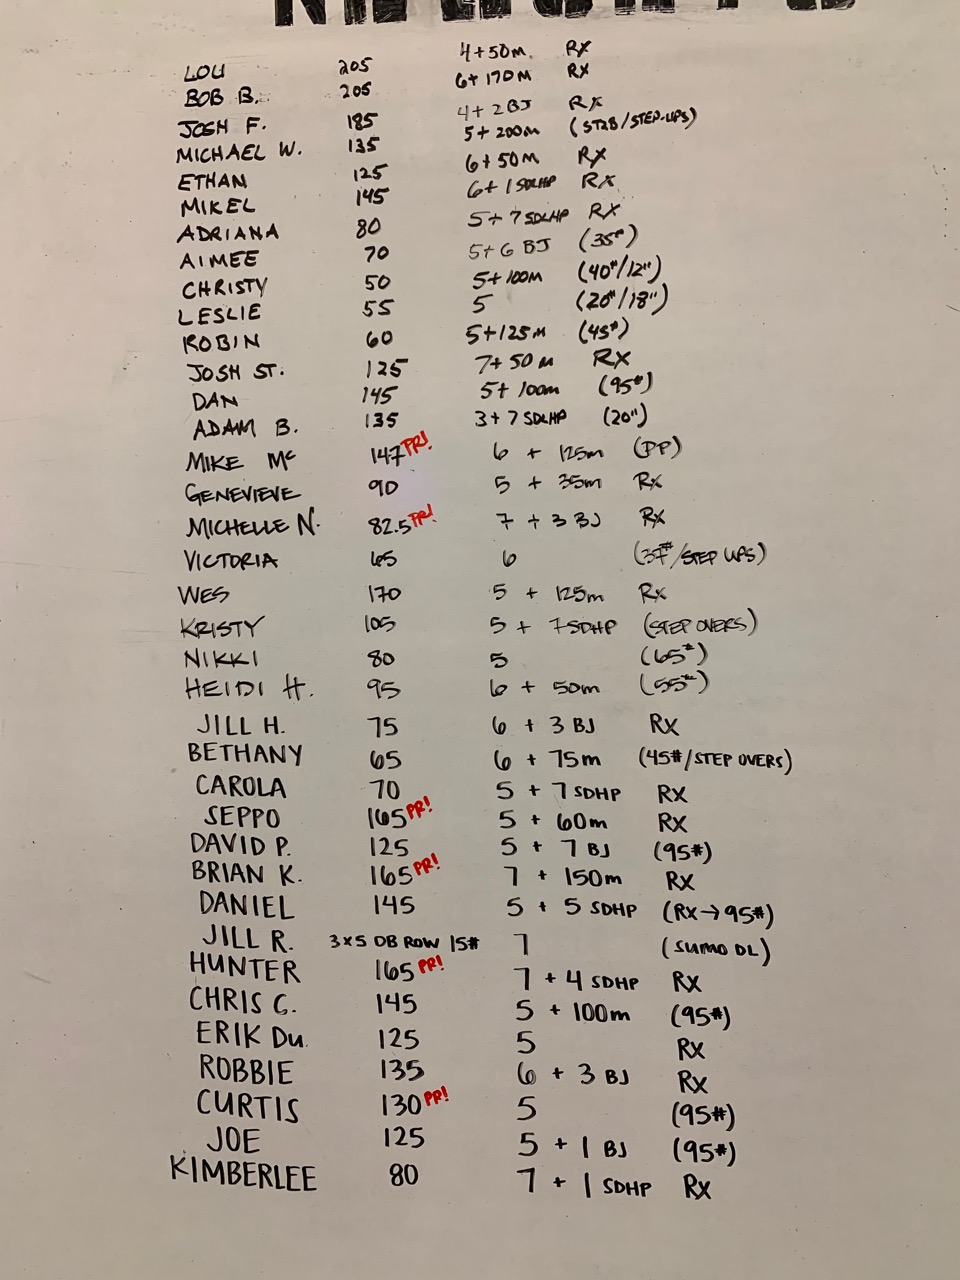 LOU 205 4+50m. Rx
BOB B. 205 6+170M Rx
JOSH F. 185 4+2BJ Rx
MICHAEL W. 135 5+200m (ST2B/STEP-UPS)
ETHAN 125 6+50M Rx
MIKEL 145 6+1SDLHP Rx
ADRIANA 80 5+7SDLHP Rx
AIMEE 70 5+6 BJ (35#)
CHRISTY 50 5+100M (40#/12")
LESLIE 55 5 (20#/18")
ROBIN 60 5+125M (45#)
JOSH ST. 125 7+50M Rx
DAN 145 5+100m (95#)
ADAM B. 135 3+7SDLHP (20")
MIKE Mc 147 PR! 6 + 125m (PP)
GENEVIEVE 90 5 + 35m Rx
MICHELLE N. 82.5 PR! 7 + 3 BJ Rx
VICTORIA 65 6 (37#/STEP UPS)
WES 170 5 + 125m Rx
KRISTY 105 5 + 7SDHP (STEP OVERS)
NIKKI 80 5 (65#)
HEIDI H. 95 6 + 50m (55#)
JILL H. 75 6 + 3 BJ Rx
BETHANY 65 6 + 75m (45#/STEP OVERS)
CAROLA 70 5 + 7 SDHP Rx
SEPPO 165 PR! 5 + 60m Rx
DAVID P. 125 5 + 7 BJ (95#)
BRIAN K. 165 PR! 7 + 150m Rx
DANIEL 145 5 + 5 SDHP (Rx→95#)
JILL R. 3x5 DB ROW 15# 7 (SUMO DL)
HUNTER 165 PR! 7 + 4 SDHP Rx
CHRIS G. 145 5 + 100m (95#)
ERIK Du. 125 5 Rx
ROBBIE 135 6 + 3 BJ Rx
CURTIS 130 PR! 5 (95#)
JOE 125 5 + 1 BJ (95#)
KIMBERLEE 80 7 + 1 SDHP Rx